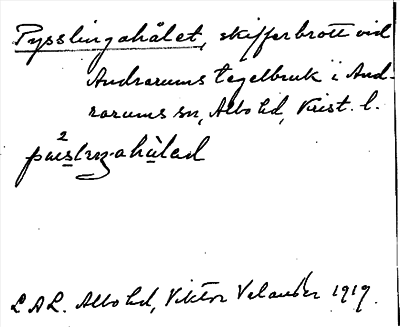 Pysslingahålet, skifferbrott vid
Andrarums tegelbruk i And-
rarums sn, Albo hd, Krist. l.
L.A.L. Albo hd, Viktor Velander 1919.